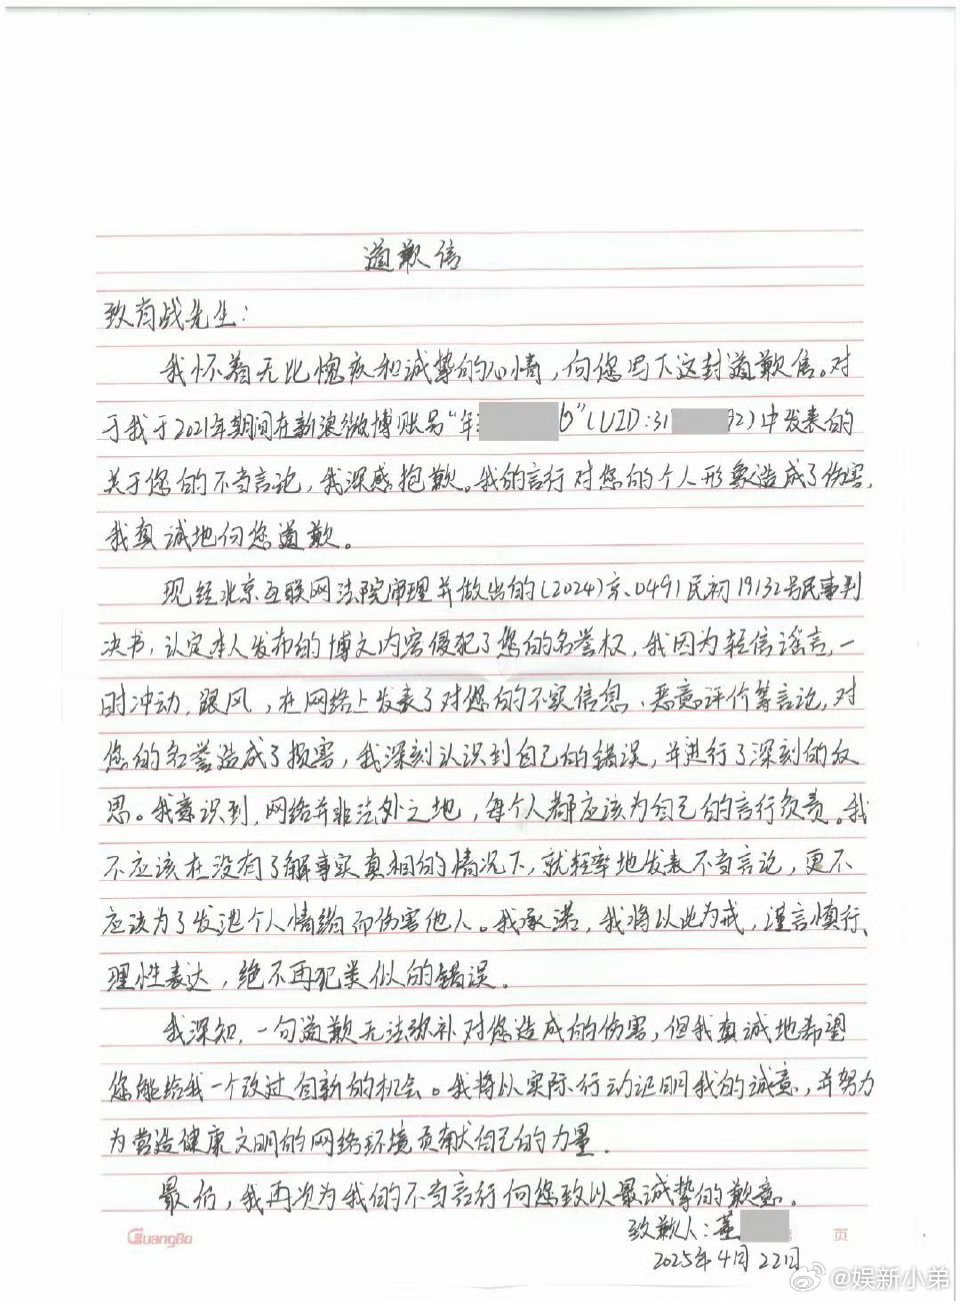 道歉信
致肖战先生：
我怀着无比愧疚和诚挚的心情，向您写下这封道歉信。对
于我于2021年期间在新浪微博账号“年 ”（UID：31 92）中发表的
关于您的不当言论，我深感抱歉。我的言行对您的个人形象造成了伤害，
我真诚地向您道歉。
现经北京互联网法院审理并做出的（2024）京0491民初19132号民事判
决书，认定本人发布的博文内容侵犯了您的名誉权，我因为轻信谣言，一
时冲动，跟风，在网络上发表了对您的不实信息、恶意评价等言论，对
您的名誉造成了损害，我深刻认识到自己的错误，并进行了深刻的反
思。我意识到，网络并非法外之地，每个人都应该为自己的言行负责。我
不应该在没有了解事实真相的情况下，就轻率地发表不当言论，更不
应该为了发泄个人情绪而伤害他人。我承诺，我将以此为戒，谨言慎行、
理性表达，绝不再犯类似的错误。
我深知，一句道歉无法弥补对您造成的伤害，但我真诚地希望
您能给我一个改过自新的机会。我将以实际行动证明我的诚意，并努力
为营造健康文明的网络环境贡献自己的力量。
最后，我再次为我的不当言行向您致以最诚挚的歉意。
致歉人：董
2025年4月22日
GuangBo 页
@娱新小弟